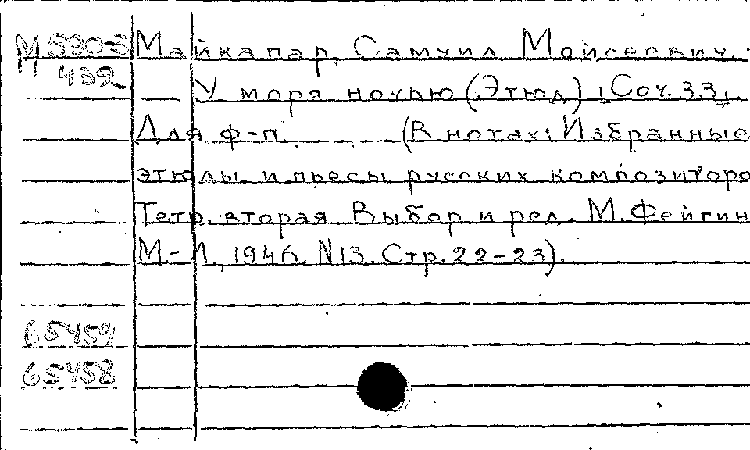 М 590-3 Майкапар, Самуил Моисеевич.
М 432
У моря ночью (Этюд) [Соч. 33].
Для ф-п. (В нотах: Избранные
этюды и пьесы русских композиторо
Тетр. вторая. Выбор и ред. М. Фейгин
М-Л, 1946. N13. Стр. 22-23).
65459
65458